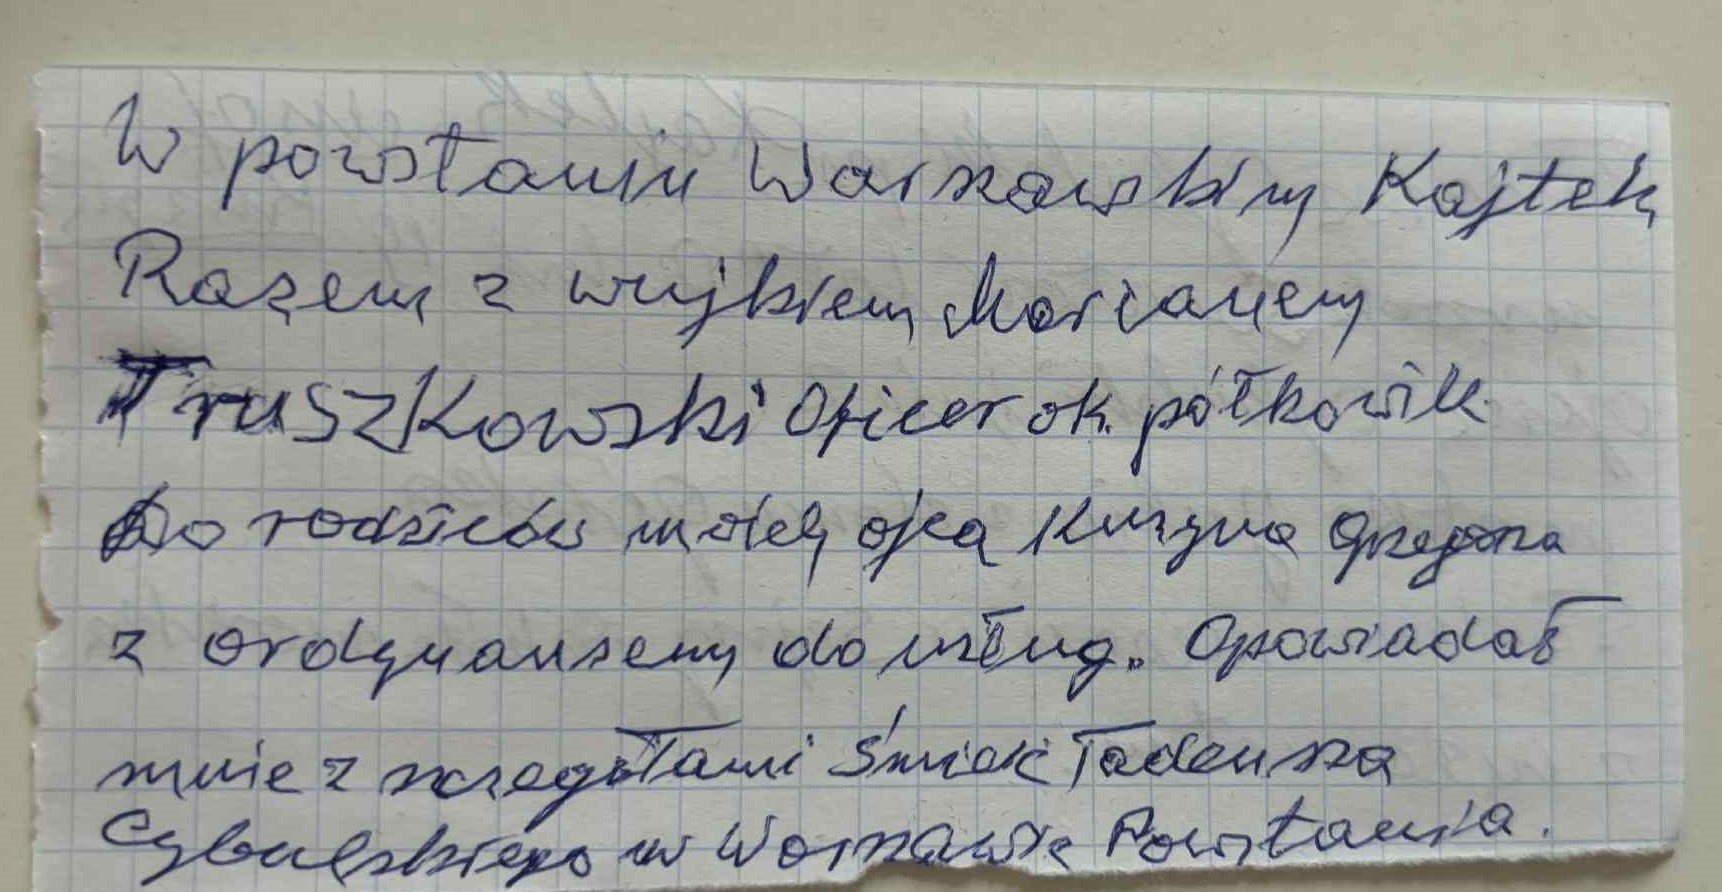 W powstaniu Warszawskim Kajtek
Razem z wujkiem Marianem
Truszkowski Oficer ok. półkownik
Do rodziców mojej ojca Kuzyna Grzegorza
z ordynansem do usług. Opowiadał
mnie z szczegółami Śmierć Tadeusza
Cybulskiego w Warszawie Powstania.